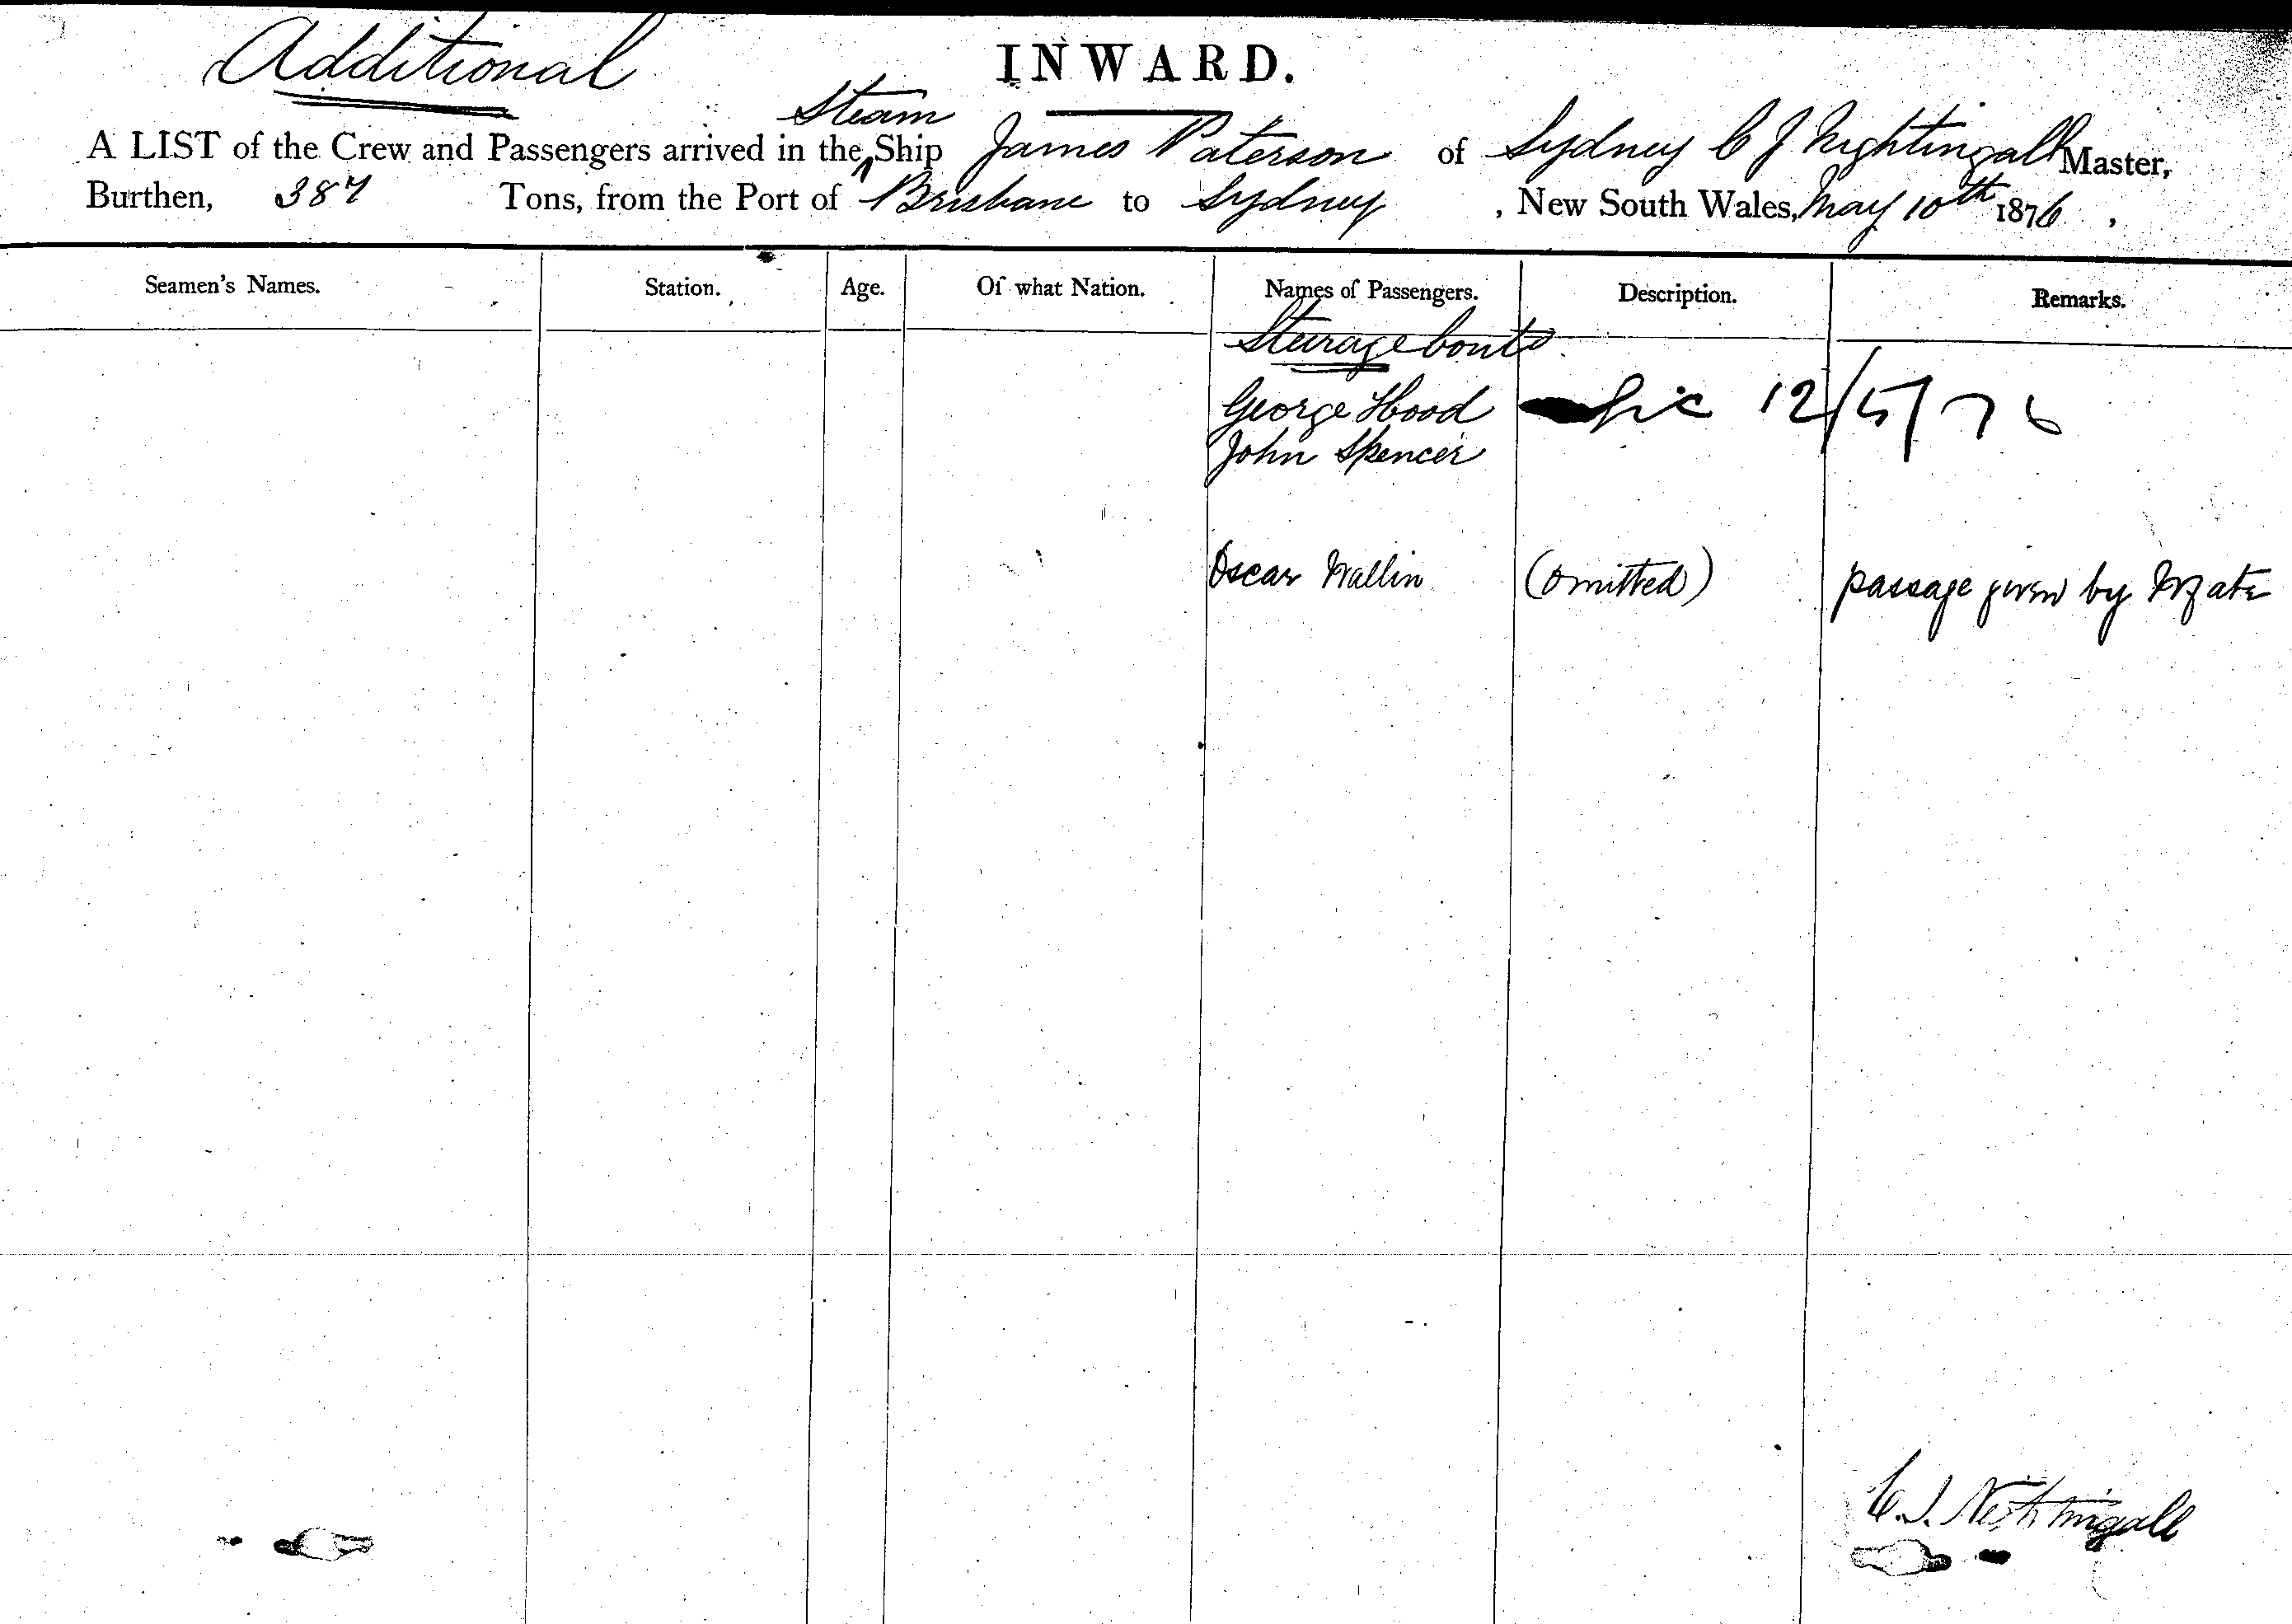 Additional
INWARD.
Steam
A LIST of the Crew and Passengers arrived in the Ship James Paterson of Sydney C J Nightingall Master,
Burthen, 387 Tons, from the Port of Brisbane to Sydney, New South Wales, May 10th 1876,
Seamen's Names. Station. Age. Of what Nation. Names of Passengers. Description. Remarks.
George Hood 12/5/76
John Spencer
Oscar Wallin (omitted) passage given by Mate
C.J. Nightingall